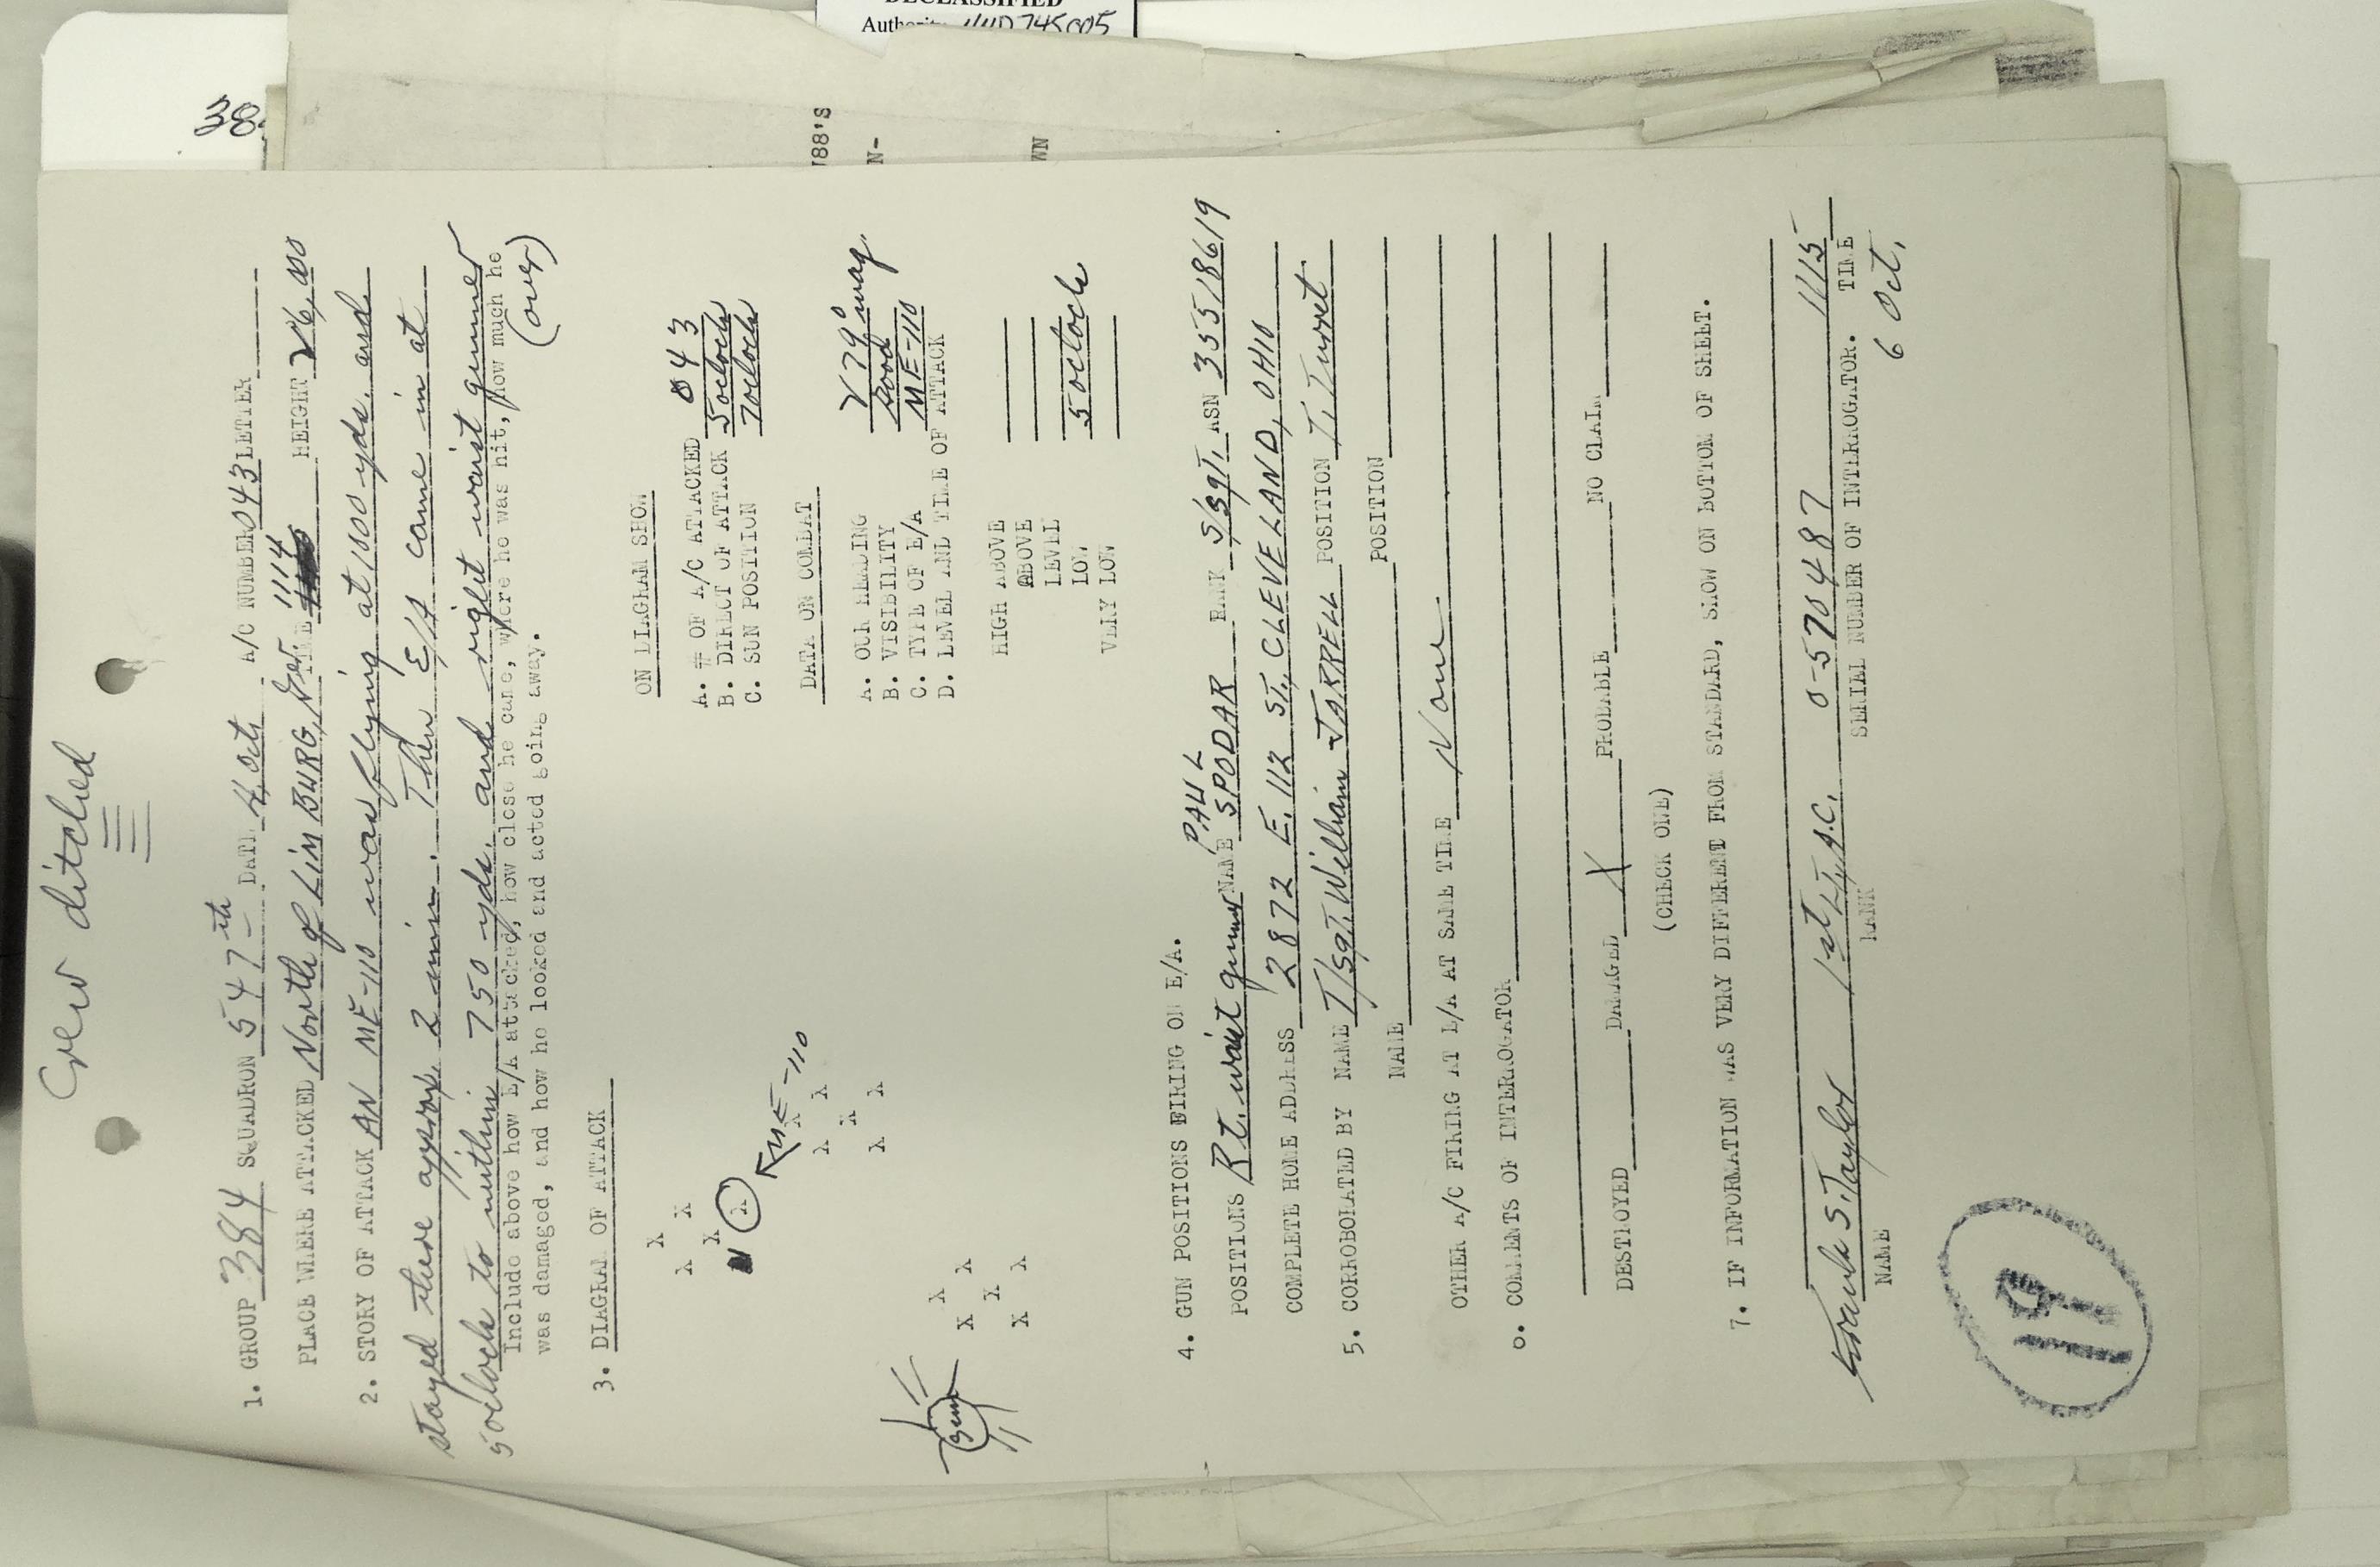 DECLASSIFIED
Authority NND 745005
38
J88'S
N-
WN
Crew ditched
1. GROUP 384 SQUADRON 547th DATE 4 Oct A/C NUMBER 043 LETTER
PLACE WHERE ATTACKED North of LIMBURG, Ger. TIME 1114 HEIGHT 26,000
2. STORY OF ATTACK AN ME-110 was flying at 1000 yds. and
stayed there approx. 2 min. Then E/A came in at
5 oclock to within 750 yds. and right waist gunner
Include above how E/A attacked, how close he came, where he was hit, how much he
was damaged, and how he looked and acted going away.
(over)
3. DIAGRAM OF ATTACK
ON DIAGRAM SHOW
A. # OF A/C ATTACKED 043
B. DIRECT OF ATTACK 5 oclock
C. SUN POSITION 7 oclock
DATA ON COMBAT
A. OUR HEADING 279° mag.
B. VISIBILITY Good
C. TYPE OF E/A ME-110
D. LEVEL AND TIME OF ATTACK
HIGH ABOVE
ABOVE
LEVEL
LOW 5 oclock
VERY LOW
X
X X
X
X
ME-110
X
X X
X
X X
X
X X
X
X X
Sun
4. GUN POSITIONS FIRING ON E/A.
POSITIONS Rt. waist gunner NAME PAUL SPODAR RANK S/Sgt. ASN 35518619
COMPLETE HOME ADDRESS 2872 E. 112 ST., CLEVELAND, OHIO
5. CORROBORATED BY NAME T/Sgt. William JARRELL POSITION T. Turret
NAME POSITION
OTHER A/C FIRING AT E/A AT SAME TIME None
6. COMMENTS OF INTERROGATOR
DESTROYED DAMAGED X PROBABLE NO CLAIM
(CHECK ONE)
7. IF INFORMATION WAS VERY DIFFERENT FROM STANDARD, SHOW ON BOTTOM OF SHEET.
Frank S. Taylor 1st Lt. A.C. 0-570487 1115
NAME RANK SERIAL NUMBER OF INTERROGATOR. TIME
6 Oct.
19